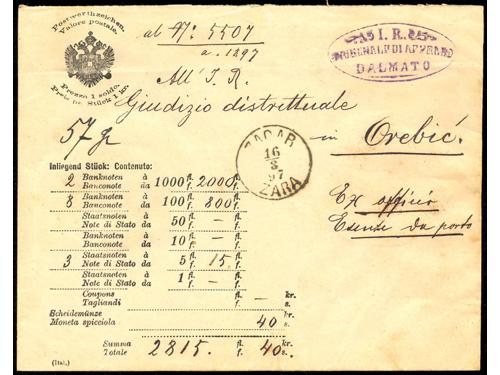 Postwerthzeichen.
Valore postale.
Prezzo 1 soldo.
Preis pr. Stück 1 kr.
ab Nº: 5507
a. 1297
I. R.
TRIBUNALE DI APPELLO
DALMATO
All' I. R.
Giudizio distrettuale
in Orebić.
57 g
ZADAR
16
3
97
ZARA
Ex officio
Esente da porto
Inliegend Stück: Contenuto:
2 Banknoten à fl.
Banconote da 1000 f. 2000 f.
8 Banknoten à fl.
Banconote da 100 f. 800 f.
Staatsnoten à fl.
Note di Stato da 50 f. – f.
Banknoten à fl.
Banconote da 10 f. – f.
3 Staatsnoten à fl.
Note di Stato da 5 f. 15 f.
Staatsnoten à fl.
Note di Stato da 1 f. – f.
Coupons fl. kr.
Tagliandi f. – s.
Scheidemünze kr.
Moneta spicciola 40 s.
Summa fl. kr.
Totale 2815. f. 40 s.
(Ital.)